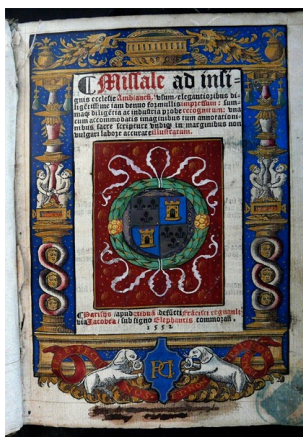 Missale ad insi-
gnis ecclesie Ambianen. vsum / elegantioribus di-
ligētissime iam denuo formulis impressum: sum-
maq; diligētia ac industria probe recognitum: vna
cum accommodatis imaginibus tum annotationi-
nibus sacre scripture vndiq; in marginibus non
vulgari labore accurate illustratum.
Parisiis / apud viduā defūcti Frācisci
via Jacobea / sub signo Elephantis commorās.
1552